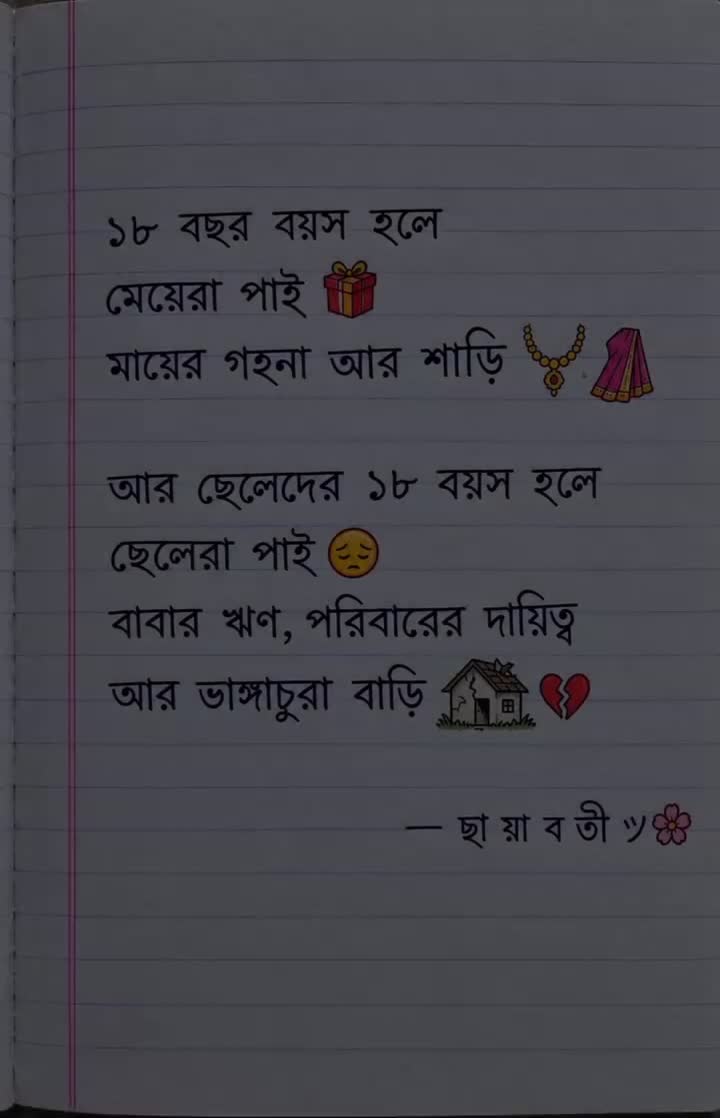 ১৮ বছর বয়স হলে
মেয়েরা পাই 🎁
মায়ের গহনা আর শাড়ি
আর ছেলেদের ১৮ বয়স হলে
ছেলেরা পাই 😔
বাবার ঋণ, পরিবারের দায়িত্ব
আর ভাঙ্গাচুরা বাড়ি 🏚️💔
— ছা য়া ব তী ツ🌸